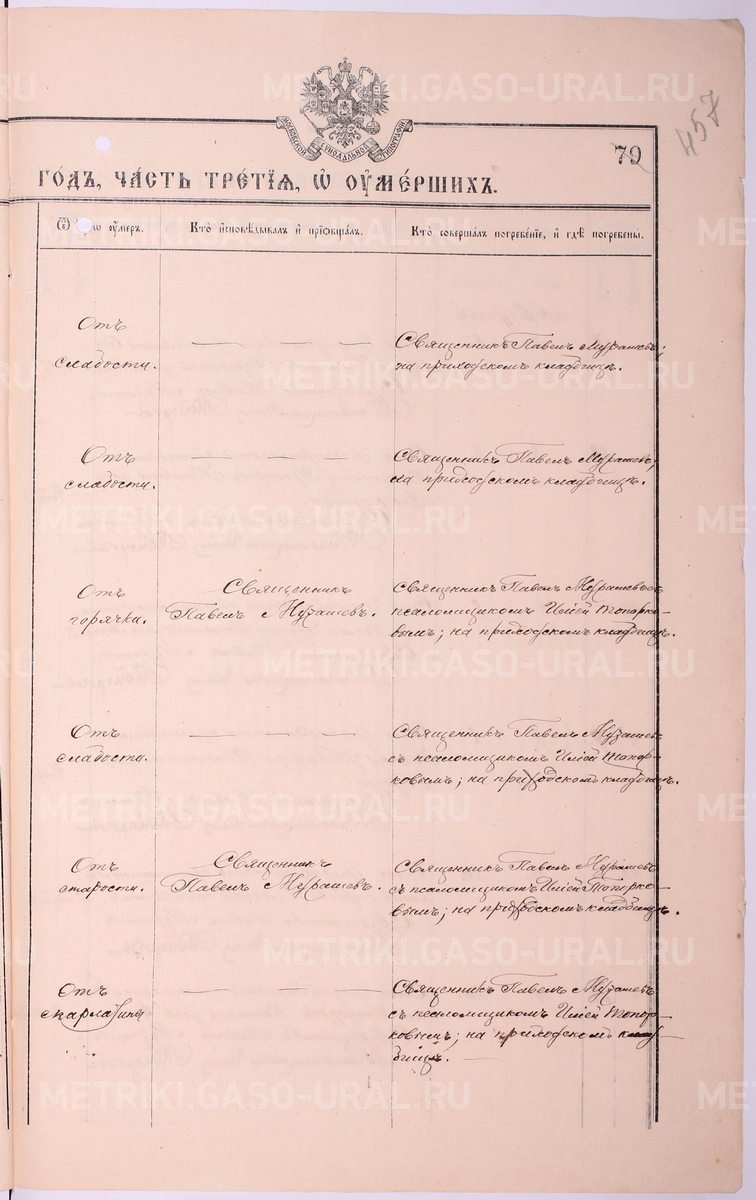 МОСКОВСКОЙ СѴНОДАЛЬНОЙ ТИПОГРАФІИ
79
457
ГО́ДЪ, ЧА́СТЬ ТРЕ́ТІЯ, Ѽ ОУМЕ́РШИХЪ.
Кто̀ и҆сповѣ́дывалъ и҆ прїѻбща́лъ.
Кто̀ соверша́лъ погребе́нїе, и҆ гдѣ̀ погребены̀.
Отъ
слабости.
Священникъ Павелъ Мурашевъ;
на приходскомъ кладбищѣ.
Отъ
слабости.
Священникъ Павелъ Мурашовъ;
на приходскомъ кладбищѣ.
Отъ
горячки.
Священникъ
Павелъ Мурашевъ.
Священникъ Павелъ Мурашевъ съ
псаломщикомъ Ильей Топорко-
вымъ; на приходскомъ кладбищѣ.
Отъ
слабости.
Священникъ Павелъ Мурашевъ
съ псаломщикомъ Ильей Топор-
ковымъ; на приходскомъ кладбищѣ.
Отъ
старости.
Священникъ
Павелъ Мурашевъ.
Священникъ Павелъ Мурашевъ
съ псаломщикомъ Ильей Топорко-
вымъ; на приходскомъ кладбищѣ.
Отъ
скарлатины
Священникъ Павелъ Мурашевъ
съ псаломщикомъ Ильей Топор-
ковымъ; на приходскомъ клад-
бищѣ.
METRIKI.GASO-URAL.RU